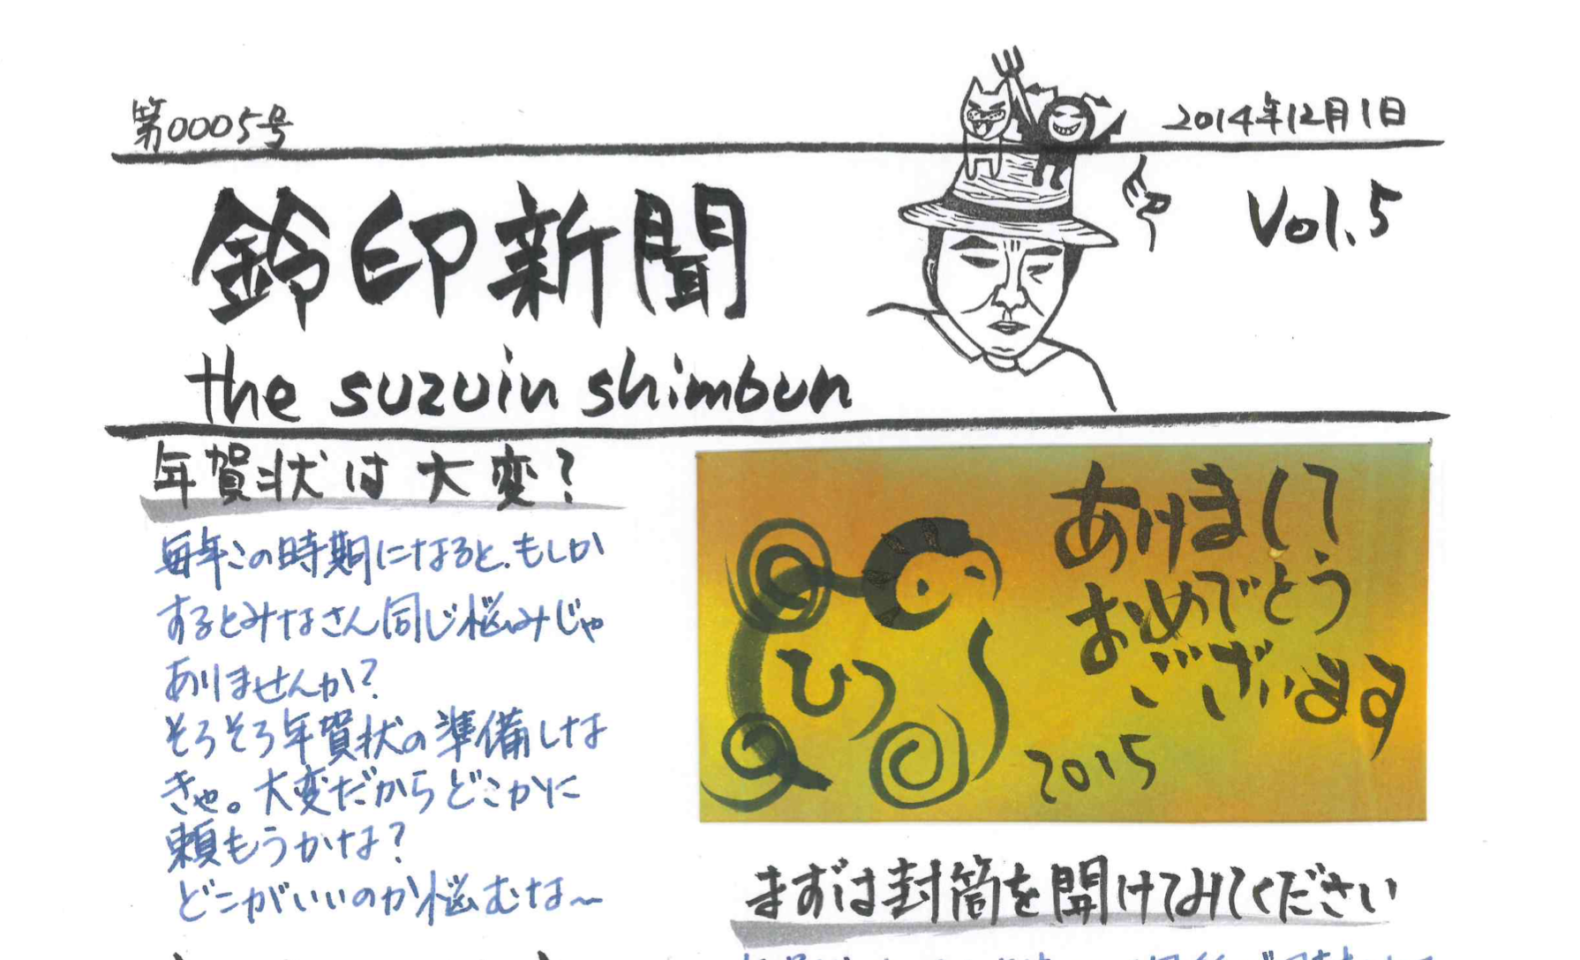 第0005号
2014年12月1日
鈴印新聞
Vol.5
the suzuin shimbun
年賀状は大変？
毎年この時期になると、もしか
するとみなさん同じ悩みじゃ
ありませんか？
そろそろ年賀状の準備しな
きゃ。大変だからどこかに
頼もうかな？
どこがいいのか悩むな～
あけまして
おめでとう
ございます
ひつ
2015
まずは封筒を開けてみてください